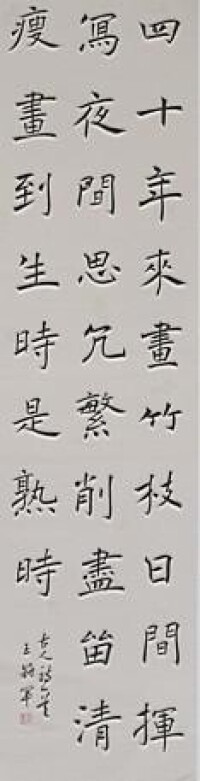 四十年來畫竹枝日間揮
寫夜間思冗繁削盡留清
瘦畫到生時是熟時
古人詩
王 軍